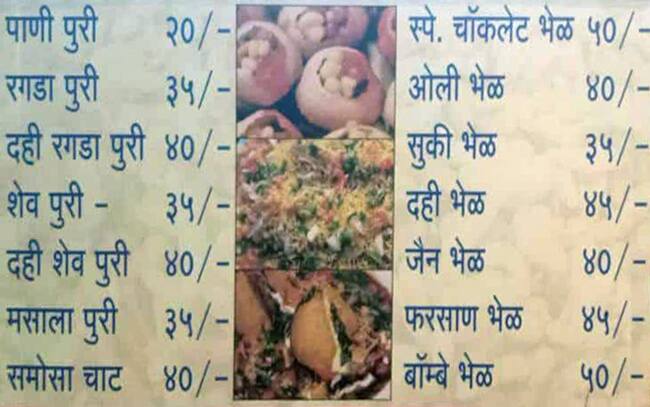 पाणी पुरी २०/-
रगडा पुरी ३५/-
दही रगडा पुरी ४०/-
शेव पुरी - ३५/-
दही शेव पुरी ४०/-
मसाला पुरी ३५/-
समोसा चाट ४०/-
स्पे. चॉकलेट भेळ ५०/-
ओली भेळ ४०/-
सुकी भेळ ३५/-
दही भेळ ४५/-
जैन भेळ ४०/-
फरसाण भेळ ४५/-
बॉम्बे भेळ ५०/-